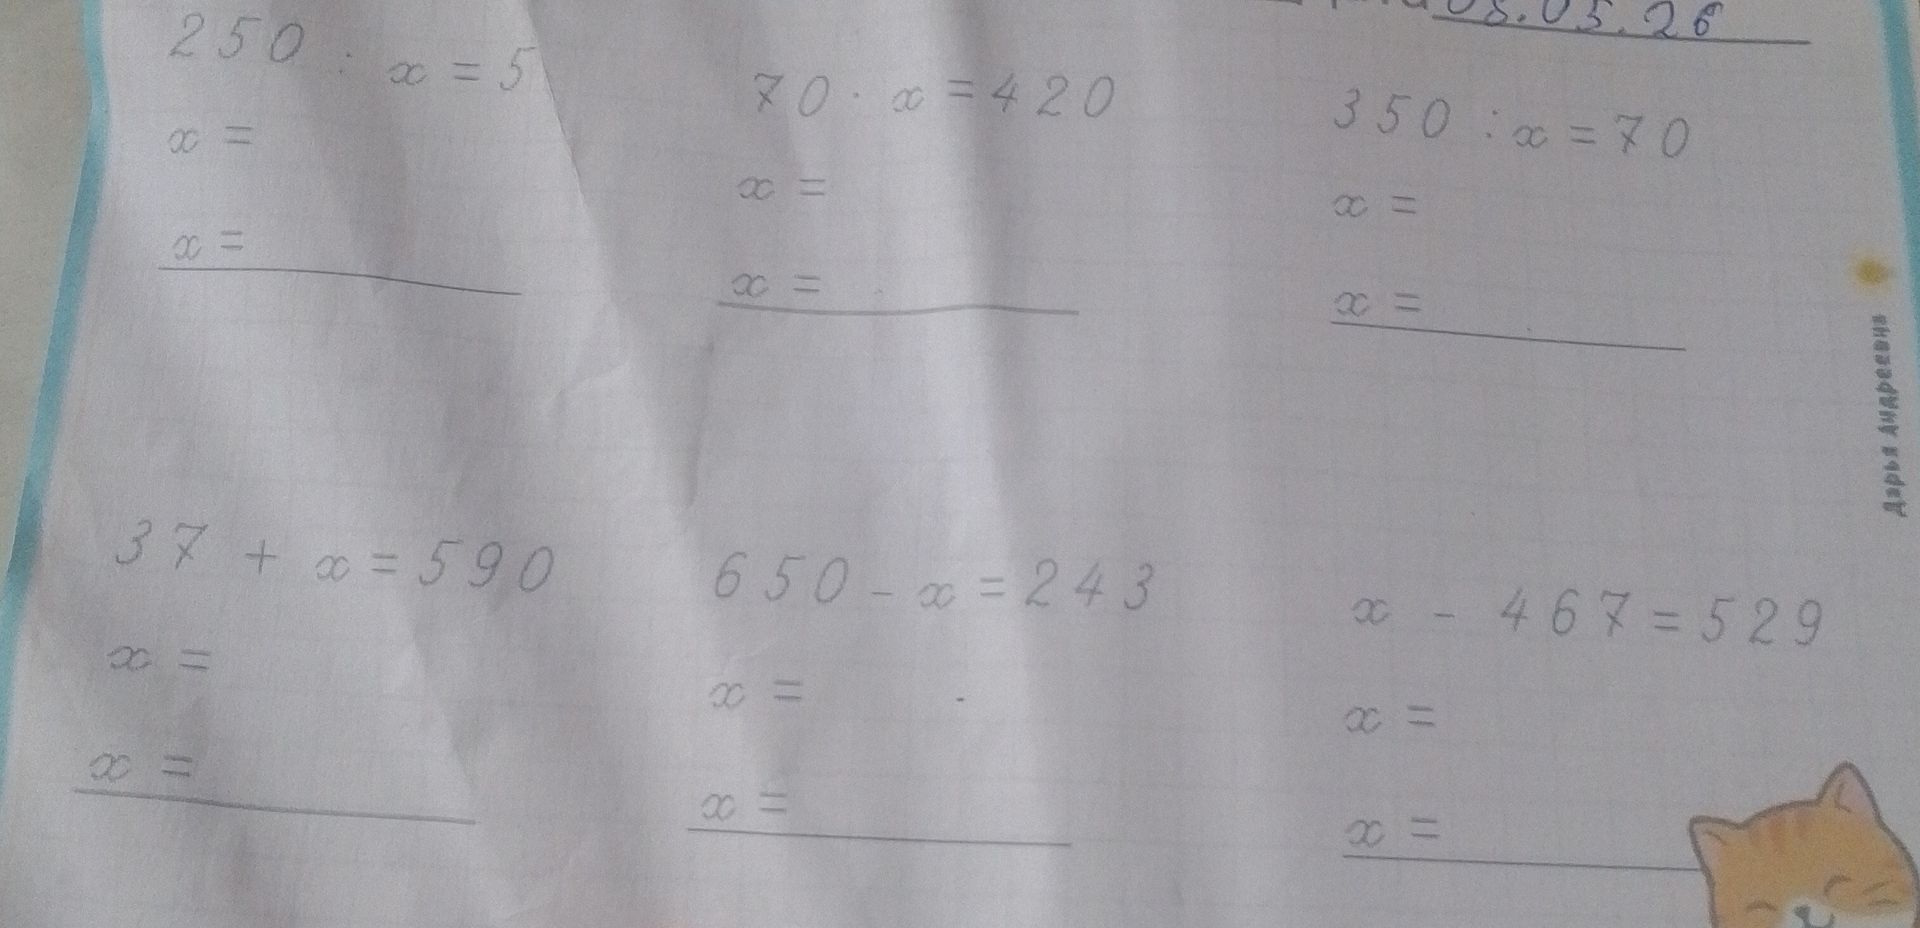 08.05.26
250 : x = 5
x =
x =
70 · x = 420
x =
x =
350 : x = 70
x =
x =
37 + x = 590
x =
x =
650 - x = 243
x =
x =
x - 467 = 529
x =
x =
Дарья Андреевна